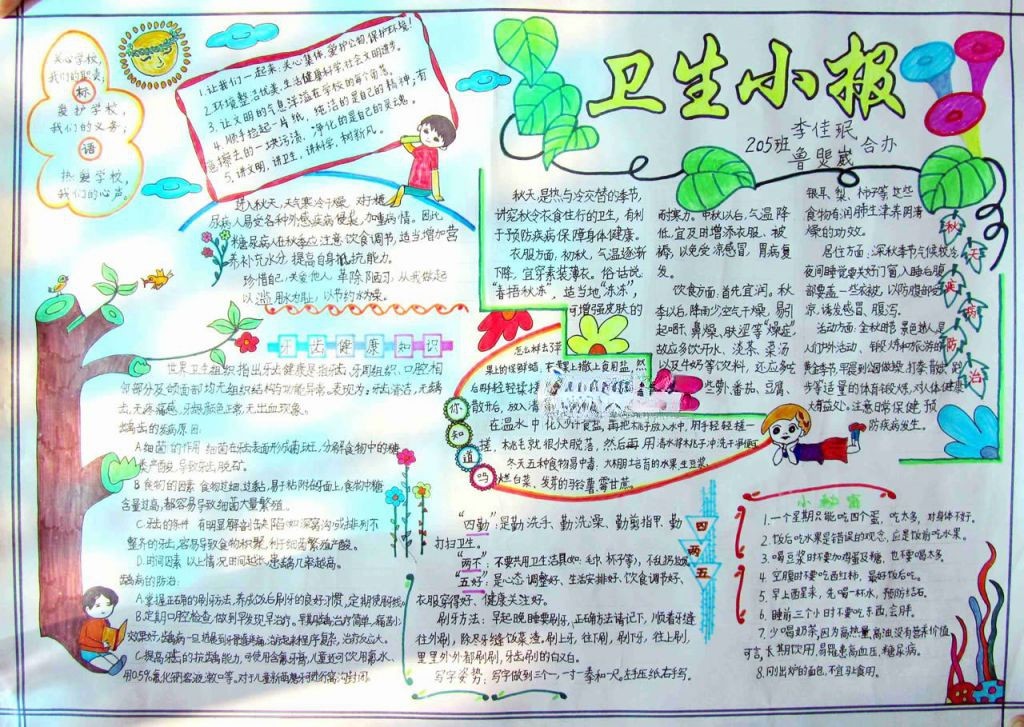 卫生小报
205班
李佳珉
合办
关心学校,
我们的职责;
爱护学校,
我们的义务;
热爱学校,
我们的心声。
标
语
1.让我们一起来,关心集体,爱护公物,保护环境!
2.环境整洁优美,生活健康科学,社会文明进步。
3.让文明的气息洋溢在学校的每个角落。
4.顺手捡起一片纸,纯洁的是自己的精神;有
意擦去的一块污渍,净化的是自己的灵魂。
5.讲文明,讲卫生,讲科学,树新风。
进入秋天,天气寒冷干燥,对于糖
尿病人易受各种外感疾病侵袭,加重病情。因此
糖尿病人在秋季应注意饮食调节,适当增加营
养补充水分,提高自身抵抗能力。
珍惜自己,关爱他人,革除陋习,从我做起
以滥用水为耻,以节约水为荣。
牙齿健康知识
世界卫生组织指出牙齿健康是指牙齿、牙周组织、口腔相
邻部分及颌面部均无组织结构与功能异常。表现为:牙齿清洁,无龋
齿,无疼痛感,牙龈颜色正常,无出血现象。
龋齿的发病原因:
A.细菌的作用 细菌在牙齿表面形成菌斑,分解食物中的糖
类产酸,导致牙齿脱矿。
B.食物的因素 食物过细、过黏,易于粘附在牙面上,食物中糖
含量过高,都容易导致细菌大量繁殖。
C.牙齿的条件 有明显解剖缺陷如深窝沟或排列不
整齐的牙齿,容易导致食物积聚,利于细菌繁殖产酸。
D.时间因素 以上情况时间越长,患龋几率越高。
龋病的防治:
A.掌握正确的刷牙方法,养成饭后刷牙的良好习惯,定期使用牙线
B.定期口腔检查,做到早发现早治疗。早期龋治疗简单,痛苦小
效果好,
C.提高牙齿的抗龋能力,可使用含氟牙膏,儿童还可饮用氟水、
秋天是热与冷交替的季节,
讲究秋令衣食住行的卫生,有利
于预防疾病保障身体健康。
衣服方面,初秋,气温逐渐
下降,宜穿素装薄衣。俗话说
"春捂秋冻",适当地"冻冻",
可增强皮肤的
耐寒力。中秋以后,气温降
低,宜及时增添衣服、被
褥,以免受凉感冒,胃病复
发。
饮食方面:首先宜润。秋
季以后,降雨少空气干燥,易引
起咽干、鼻燥、肤涩等"燥症"
故应多饮开水、淡茶、菜汤
以及牛奶等饮料,还应多吃
些萝卜、番茄、豆腐、
银耳、梨、柿子等,这些
食物有润肺生津养阴清
燥的功效。
居住方面:深秋季节气候较冷
夜间睡觉要关好门窗,入睡后腹
部要盖一些衣被,以防腹部受
凉,诱发感冒、腹泻。
活动方面:金秋时节,景色迷人,是
人们户外活动、锻炼和旅游的
黄金季节,平晨到公园做操、打拳、散
步等适量的体育锻炼,对人体健康
大有益处。注意日常保健,预
防疾病发生。
秋
天
疾
病
防
治
你
知
道
吗
怎么样去下苹
果上的保鲜蜡,在苹果上撒上食用盐,然
后用手轻轻揉
散开后,放入清
在温水中 化入少许食盐,再把桃子放入水中,用手轻轻揉一
揉,桃毛就很快脱落,然后再用清水将桃子冲洗干净即可
冬天五种食物易中毒,大棚无土培育的水果、生豆浆、
烂白菜、发芽的马铃薯、霉甘蔗。
四
两
五
"四勤":是勤洗手、勤洗澡、勤剪指甲、勤
打扫卫生。
"两不":不要共用卫生洁具(如:毛巾、杯子等),不乱扔垃圾
"五好":是心态调整好、生活安排好、饮食调节好、
衣服穿得好、健康关注好。
刷牙方法:早起晚睡要刷牙,正确方法请记下,顺着牙缝
往外刷,除尽牙缝饭菜渣,刷上牙,往下刷,刷下牙,往上刷,
里里外外都刷刷,牙齿刷的白又白。
写字姿势:写字做到三个一,一寸一拳和一尺。左手压纸右手写。
小秘密
1.一个星期只能吃四个蛋,吃太多,对身体不好。
2.饭后吃水果是错误的观念,应是饭前吃水果。
3.喝豆浆时不要加鸡蛋及糖,也不要喝太多。
4.空腹时不要吃西红柿,最好饭后吃。
5.早上醒来,先喝一杯水,预防结石。
6.睡前三个小时不要吃东西,会胖。
7.少喝奶茶,因为高热量,高油,没有营养价值
可言,长期饮用,易罹患高血压,糖尿病。
8.刚出炉的面包,不宜马上食用。